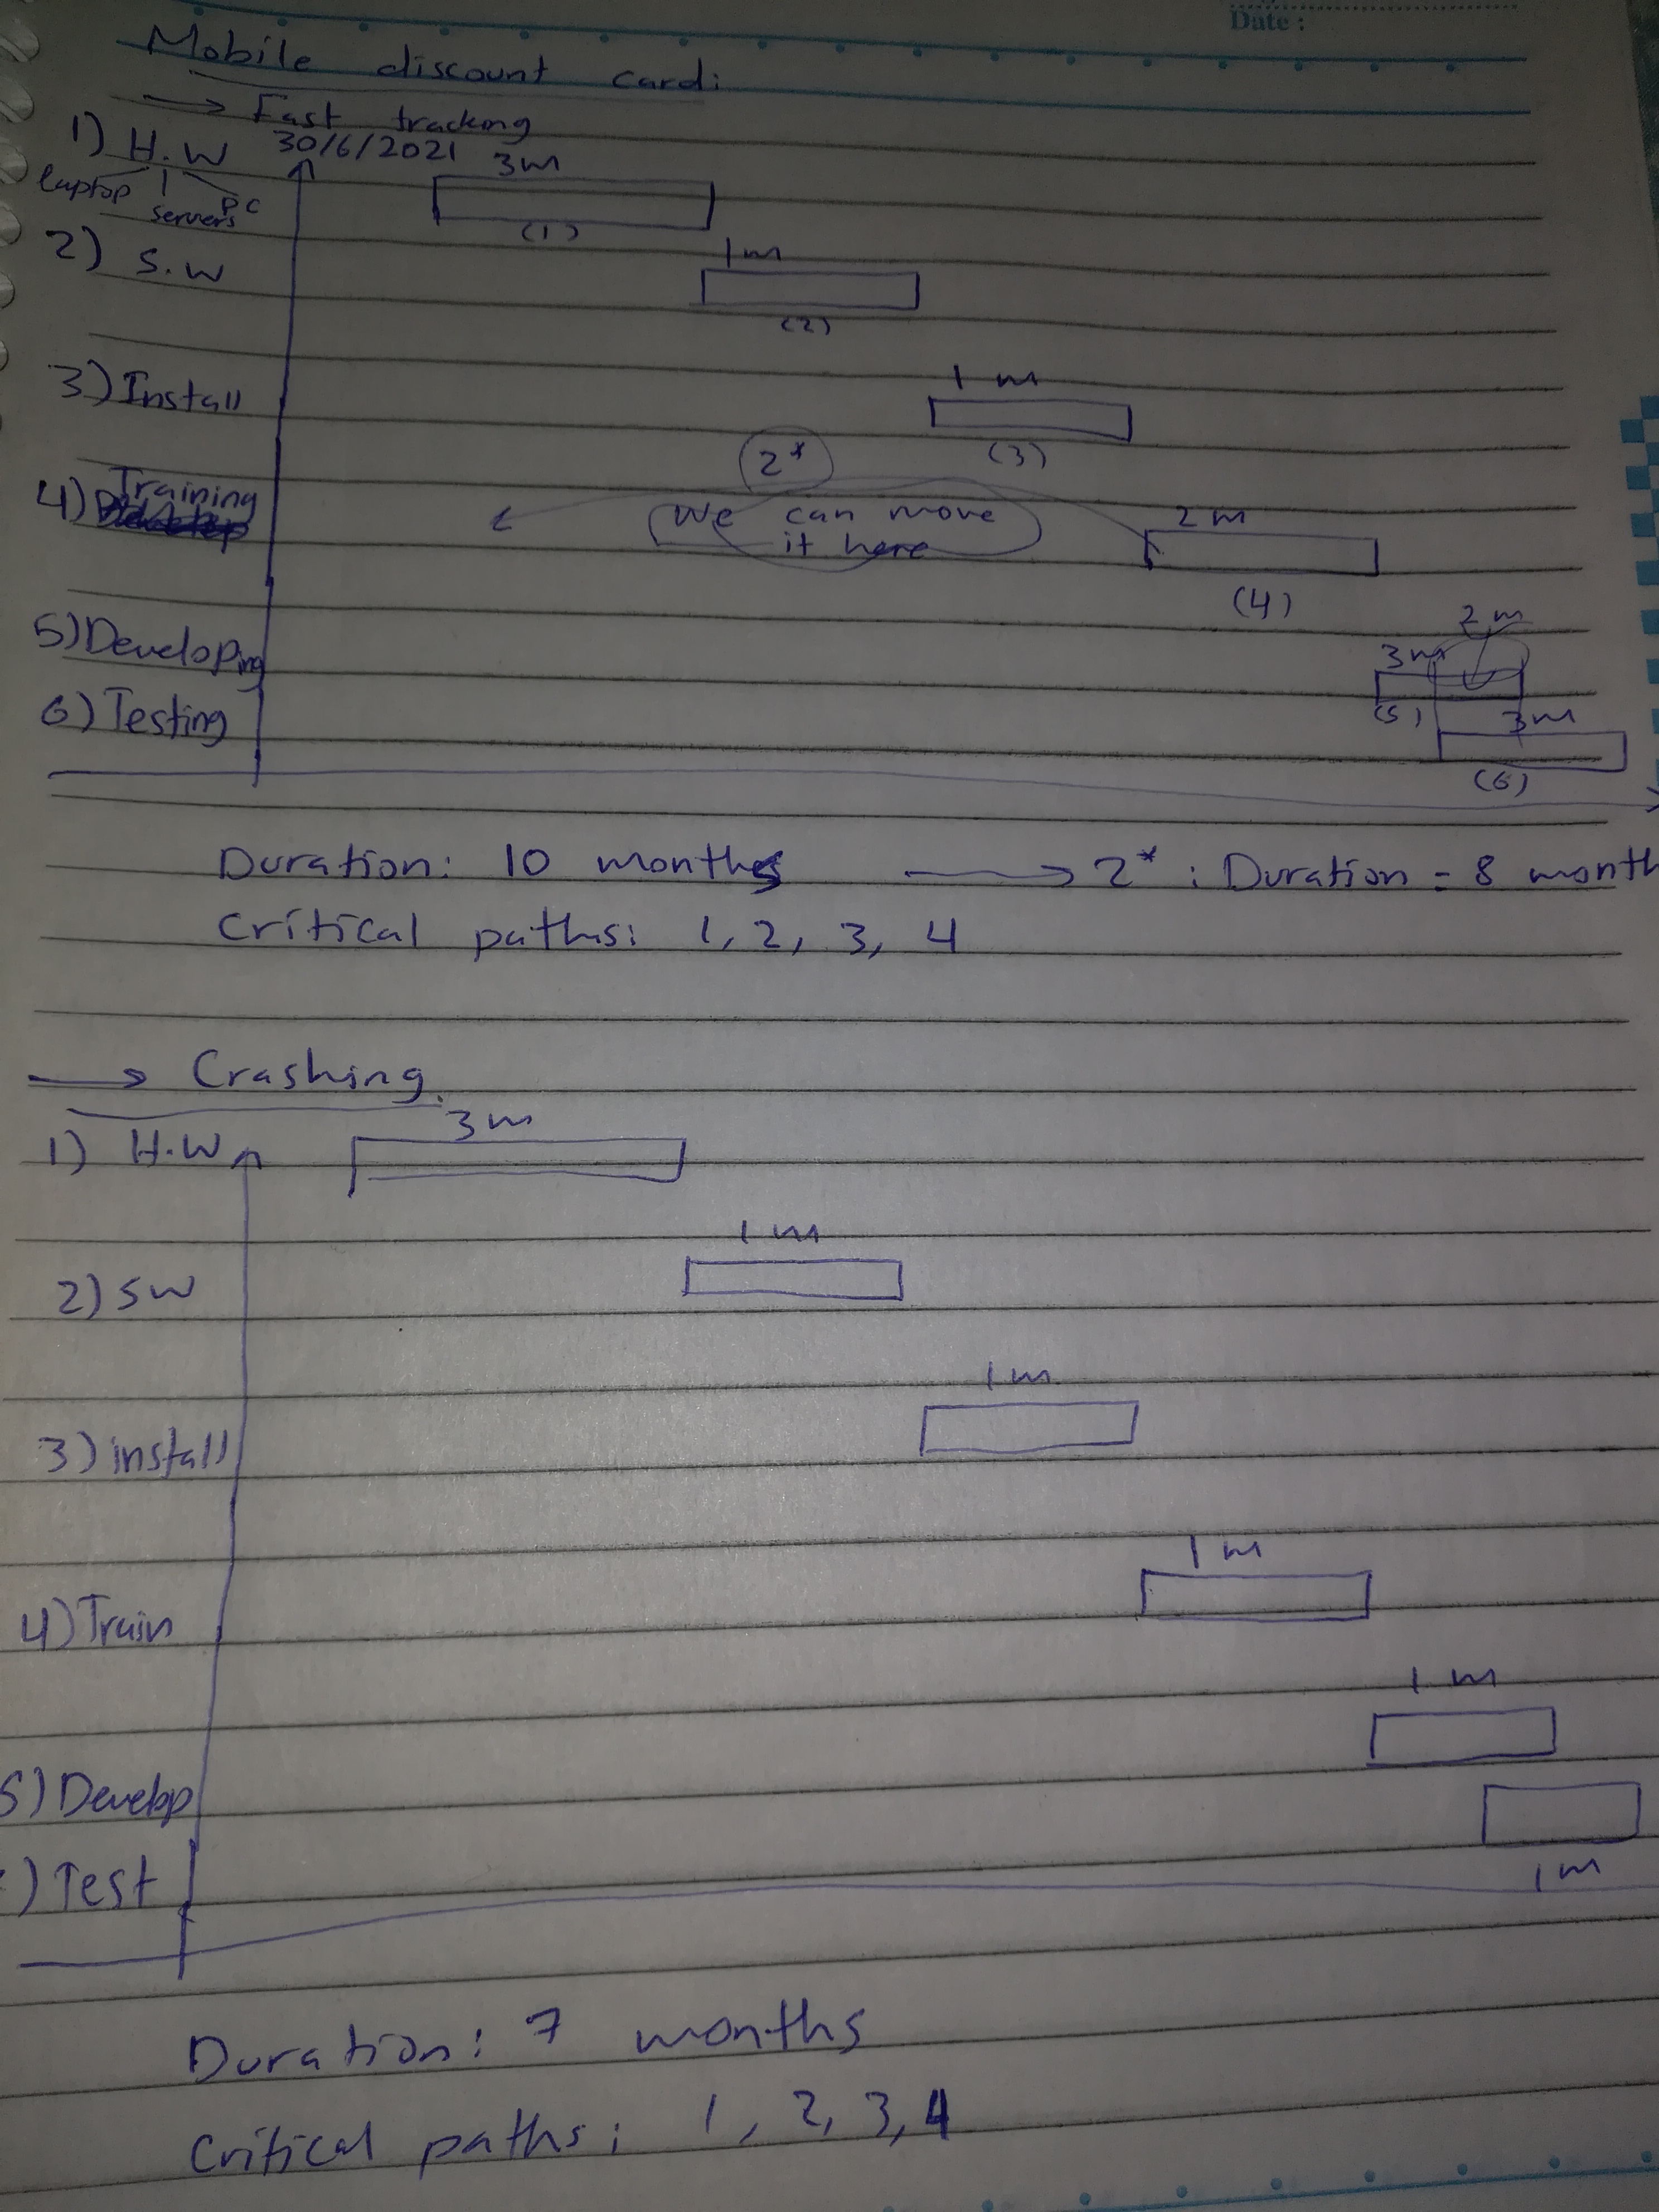 Date :
Mobile discount card:
→ Fast tracking
1) H.W 30/6/2021 3m
laptop servers PC
(1)
2) S.W 1m
(2)
3) Install 1m
(3)
2*
4) Training 2m
We can move
it here
(4)
2m
5) Developing 3m
(5)
6) Testing 3m
(6)
Duration: 10 months → 2* : Duration = 8 month
Critical paths: 1, 2, 3, 4
→ Crashing.
1) H.W 3m
1m
2) SW
1m
3) install
1m
4) Train
1m
5) Develop
) Test 1m
Duration: 7 months
Critical paths: 1, 2, 3, 4